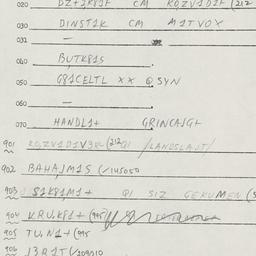 020 DZ+1K81F CM KOZV1D1F (212
030 DINST1K CM M1TVOX
031 —
040 BUTK81S
050 G81CELTL XX @ SYN
060 —
070 HANDL1+ GRINCAJG+
901 KOZV1D1V3KL (212 @1 /LANDSLAUT/
902 BAHAJM1S (√145050
903 S1K81M1+ @1 S1Z GEKUMEN (5
904 V.RU.K81+ (995
905 TU.N1+ (995
906 13R1T (√209910